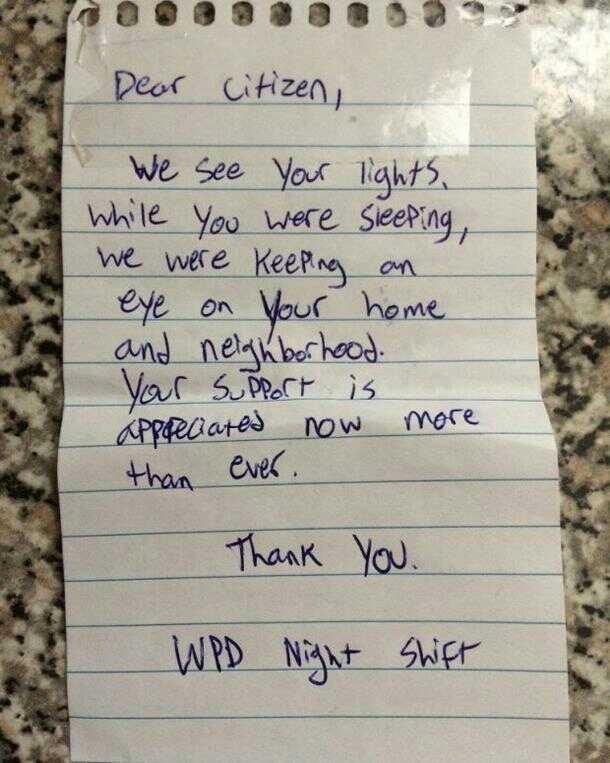 Dear Citizen,
We see your lights.
While you were sleeping,
we were keeping an
eye on your home
and neighborhood.
Your support is
appreciated now more
than ever.
Thank you.
WPD Night Shift